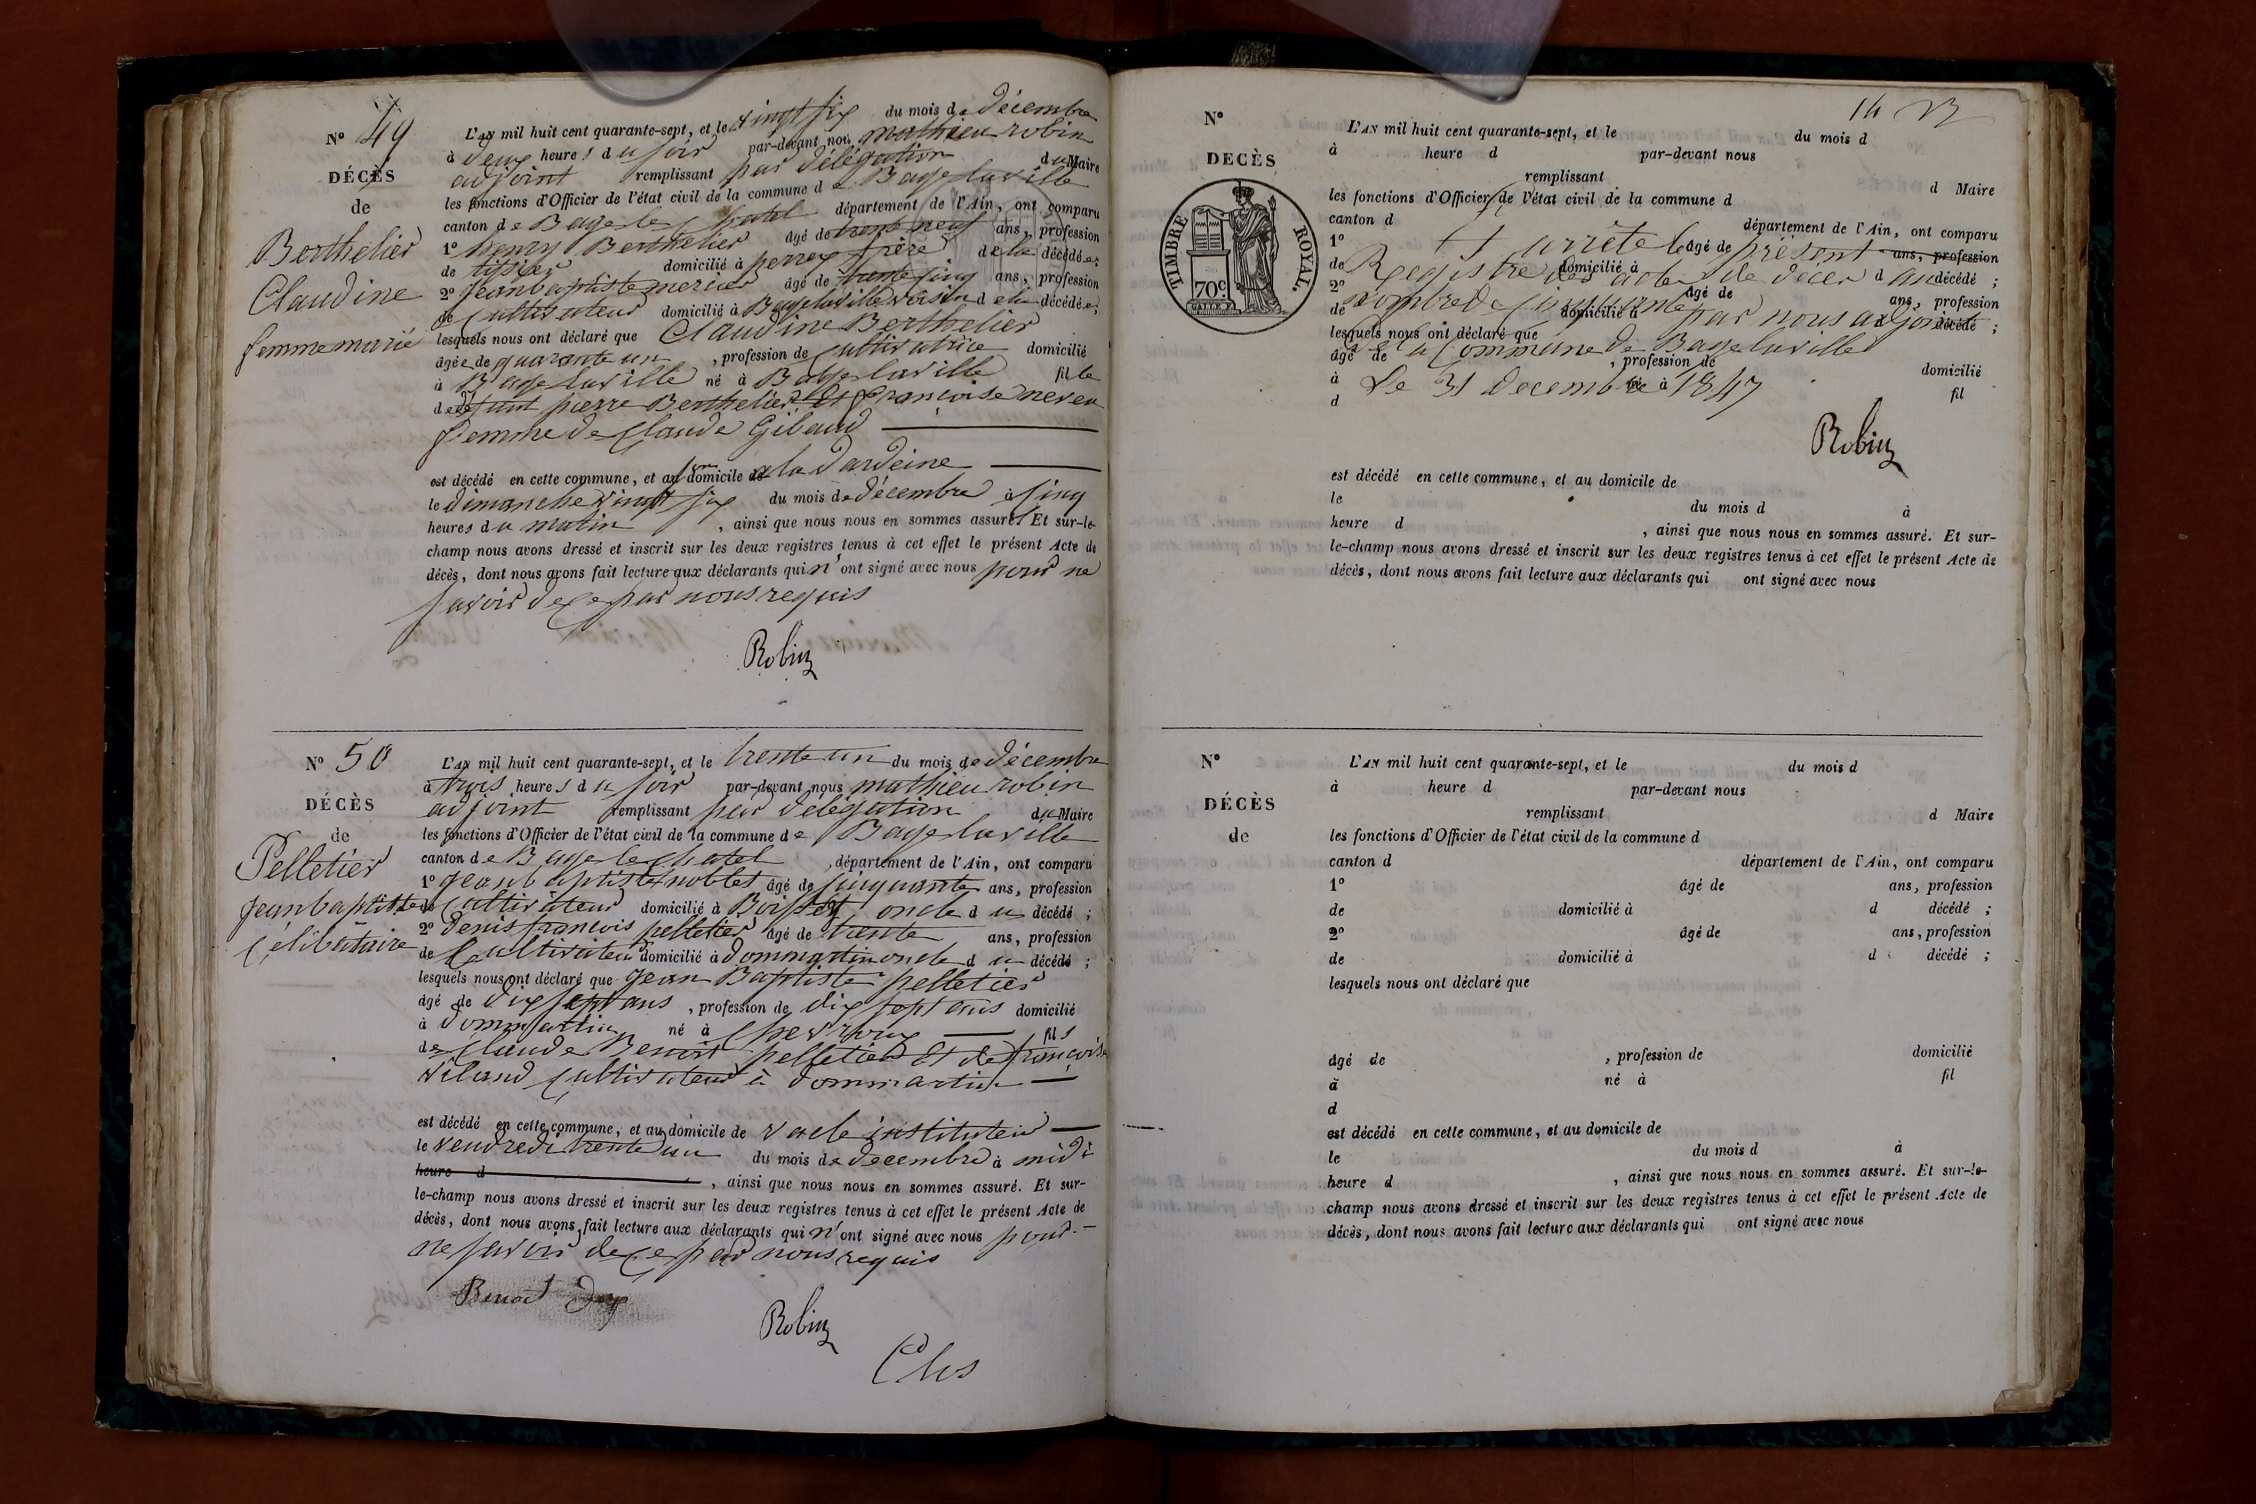 N° 49
DÉCÈS
de
Berthelier
Claudine
femme marié
L'AN mil huit cent quarante-sept, et le vingt six du mois de décembre
à deux heures du soir par-devant nous mathieu robin
adjoint remplissant par délégation du Maire
les fonctions d'Officier de l'état civil de la commune de Bage la ville
canton de Bage le chatel département de l'Ain, ont comparu
1° henry Berthelier âgé de trente neuf ans, profession
de tissier domicilié à perrex frère de la décédée;
2° jean baptiste mercier âgé de trente sinq ans, profession
de Cultivateur domicilié à Bage la ville voisin de la décédée;
lesquels nous ont déclaré que Claudine Berthelier
âgée de quarante un, profession de Cultivatrice domicilié
à Bage la ville né à Bage la ville fille
de défunt pierre Berthelier Et françoise neveu
femme de Claude Gibaud
est décédé en cette commune, et au domicile de son a la dardeine
le dimanche vingt six du mois de décembre à sinq
heures du matin, ainsi que nous nous en sommes assuré. Et sur-le-
champ nous avons dressé et inscrit sur les deux registres tenus à cet effet le présent Acte de
décès, dont nous avons fait lecture aux déclarants qui n'ont signé avec nous pour ne
savoir de Ce par nous requis
Robin
N° 50
DÉCÈS
de
Pelletier
Jean baptiste
Célibataire
L'AN mil huit cent quarante-sept, et le trente un du mois de décembre
à trois heures du soir par-devant nous mathieu robin
adjoint remplissant par délégation du Maire
les fonctions d'Officier de l'état civil de la commune de Bage la ville
canton de Bage le chatel, département de l'Ain, ont comparu
1° jean baptiste nobles âgé de sinquante ans, profession
de Cultivateur domicilié à Boissey oncle du décédé;
2° denis francois pelletier âgé de trente ans, profession
de Cultivateur domicilié à dommartin oncle du décédé;
lesquels nous ont déclaré que jean Baptiste pelletier
âgé de dix sept ans, profession de dix sept ans domicilié
à dommartin né à Chevroux fils
de Claude Benoit pelletier Et de françoise
vilaud Cultivateur à dommartin
est décédé en cette commune, et au domicile de instituteur
le vendredi trente un du mois de décembre à midi
heure d, ainsi que nous nous en sommes assuré. Et sur-
le-champ nous avons dressé et inscrit sur les deux registres tenus à cet effet le présent Acte de
décès, dont nous avons fait lecture aux déclarants qui n'ont signé avec nous pour
ne savoir de Ce par nous requis
Benoit
Robin
14
N°
DECÈS
TIMBRE ROYAL.
70 c
L'AN mil huit cent quarante-sept, et le du mois d
à heure d par-devant nous
remplissant d Maire
les fonctions d'Officier de l'état civil de la commune d
canton d département de l'Ain, ont comparu
1° âgé de ans, profession
arrêté le présent
de domicilié à d décédé;
Registre des actes de décès au
2° âgé de ans, profession
nombre de Cinquante par nous adjoint
de domicilié à d décédé;
lesquels nous ont déclaré que
de la Commune de Bage la ville
âgé de, profession de domicilié
à né à fil
Le 31 decembre 1847
d
Robin
est décédé en cette commune, et au domicile de
le du mois d à
heure d, ainsi que nous nous en sommes assuré. Et sur-
le-champ nous avons dressé et inscrit sur les deux registres tenus à cet effet le présent Acte de
décès, dont nous avons fait lecture aux déclarants qui ont signé avec nous
N°
DÉCÈS
de
L'AN mil huit cent quarante-sept, et le du mois d
à heure d par-devant nous
remplissant d Maire
les fonctions d'Officier de l'état civil de la commune d
canton d département de l'Ain, ont comparu
1° âgé de ans, profession
de domicilié à d décédé;
2° âgé de ans, profession
de domicilié à d décédé;
lesquels nous ont déclaré que
âgé de, profession de domicilié
à né à fil
d
est décédé en cette commune, et au domicile de
le du mois d à
heure d, ainsi que nous nous en sommes assuré. Et sur-le-
champ nous avons dressé et inscrit sur les deux registres tenus à cet effet le présent Acte de
décès, dont nous avons fait lecture aux déclarants qui ont signé avec nous